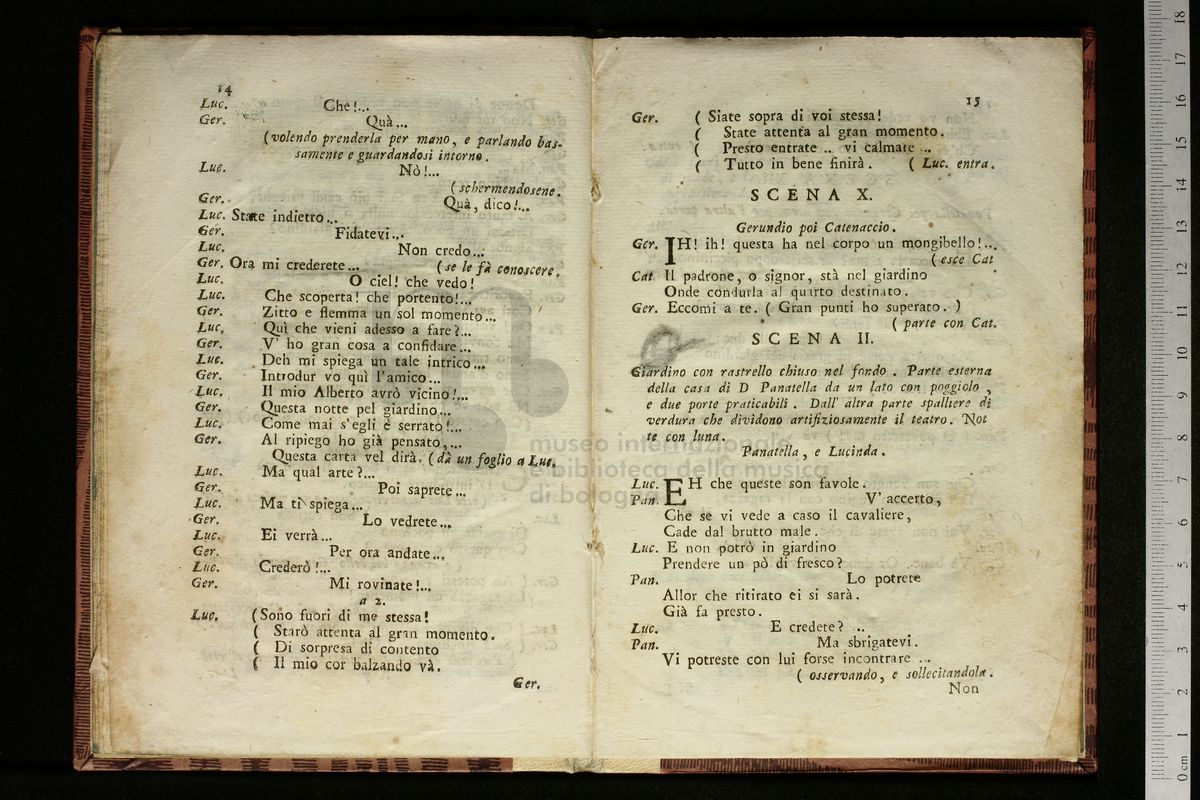 14
Luc. Che!...
Ger. Quà...
(volendo prenderla per mano, e parlando bas-
samente e guardandosi intorno.
Luc. Nò!...
(schermendosene.
Ger. Quà, dico!...
Luc. State indietro...
Ger. Fidatevi...
Luc. Non credo...
Ger. Ora mi crederete... (se le fà conoscere.
Luc. O ciel! che vedo!
Luc. Che scoperta! che portento!...
Ger. Zitto e flemma un sol momento...
Luc. Quì che vieni adesso a fare?...
Ger. V' ho gran cosa a confidare...
Luc. Deh mi spiega un tale intrico...
Ger. Introdur vo quì l'amico...
Luc. Il mio Alberto avrò vicino!...
Ger. Questa notte pel giardino...
Luc. Come mai s'egli è serrato!...
Ger. Al ripiego ho già pensato,...
Questa carta vel dirà. (dà un foglio a Luc.
Luc. Ma qual arte?...
Ger. Poi saprete...
Luc. Ma ti spiega...
Ger. Lo vedrete...
Luc. Ei verrà...
Ger. Per ora andate...
Luc. Crederò!...
Ger. Mi rovinate!...
a 2.
Luc. (Sono fuori di me stessa!
( Starò attenta al gran momento.
( Di sorpresa di contento
( Il mio cor balzando và.
Ger.
15
Ger. ( Siate sopra di voi stessa!
( State attenta al gran momento.
( Presto entrate .. vi calmate ...
( Tutto in bene finirà. ( Luc. entra.
SCENA X.
Gerundio poi Catenaccio.
Ger. IH! ih! questa ha nel corpo un mongibello!...
( esce Cat
Cat. Il padrone, o signor, stà nel giardino
Onde condurla al quarto destinato.
Ger. Eccomi a te. ( Gran punti ho superato. )
( parte con Cat.
SCENA II.
Giardino con rastrello chiuso nel fondo. Parte esterna
della casa di D Panatella da un lato con poggiolo,
e due porte praticabili. Dall' altra parte spalliere di
verdura che dividono artifiziosamente il teatro. Not
te con luna.
Panatella, e Lucinda.
Luc. EH che queste son favole.
Pan. V' accerto,
Che se vi vede a caso il cavaliere,
Cade dal brutto male.
Luc. E non potrò in giardino
Prendere un pò di fresco?
Pan. Lo potrete
Allor che ritirato ei si sarà.
Già fa presto.
Luc. E credete? ..
Pan. Ma sbrigatevi.
Vi potreste con lui forse incontrare ...
( osservando, e sollecitandola.
Non
museo internazionale
e biblioteca della musica
di bologna
0 cm 1 2 3 4 5 6 7 8 9 10 11 12 13 14 15 16 17 18